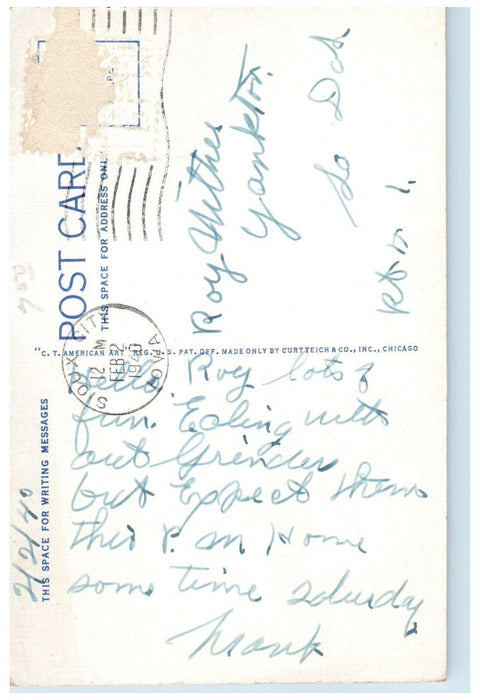 POST CARD
THIS SPACE FOR ADDRESS ONLY
Roy
Yankton
So Dak
"C. T. AMERICAN ART" REG. U. S. PAT. OFF. MADE ONLY BY CURT TEICH & CO., INC., CHICAGO
SIOUX CITY
12 M
FEB 2
1940
IOWA
THIS SPACE FOR WRITING MESSAGES
2/2/40
Hello Roy lots of
fun. with
out Grinder
but Expect them
this P. M Home
some time Saturday